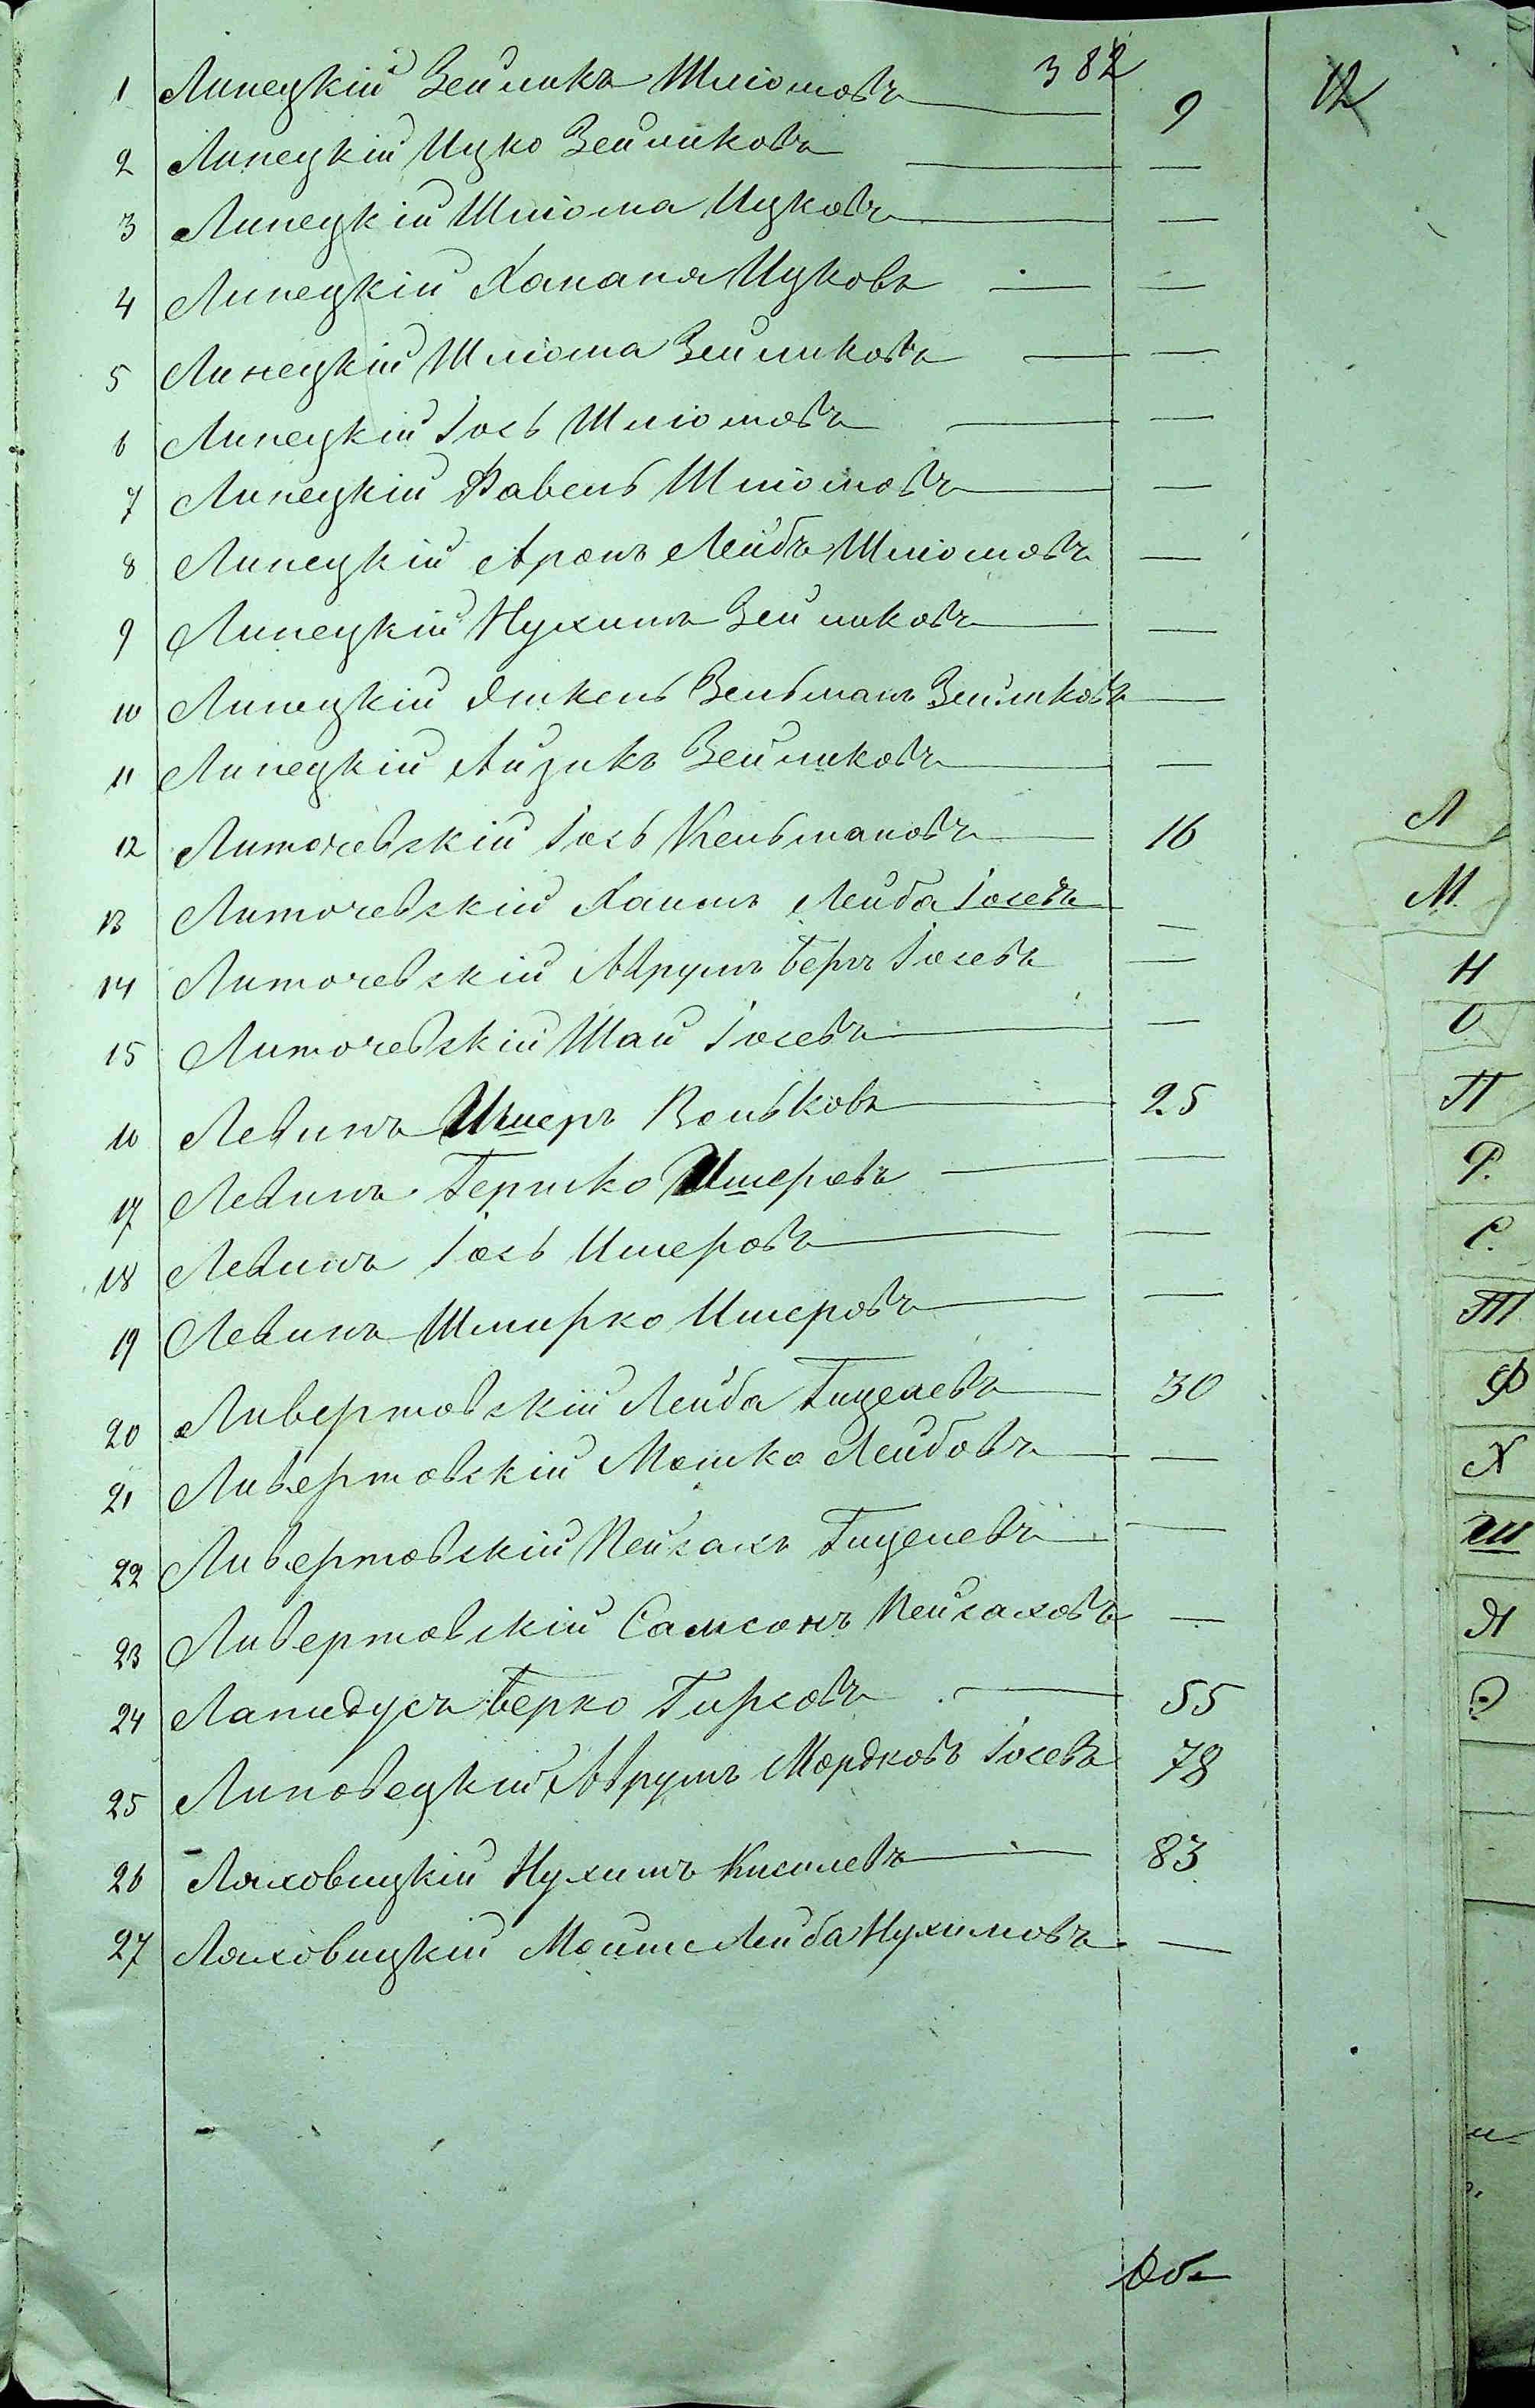 382
12
1 Линецкій Зейликъ Шліомовъ 9
2 Линецкій Ицко Зейликовъ —
3 Линецкій Шліома Ицковъ —
4 Линецкій Хананя Ицковъ —
5 Линецкій Шліома Зейликовъ —
6 Линецкій Іось Шліомовъ —
7 Линецкій Фавель Шліомовъ —
8 Линецкій Аронъ Лейбъ Шліомовъ —
9 Линецкій Нухимъ Зейликовъ —
10 Линецкій Янкель Зельманъ Зейликовъ —
11 Линецкій Айзикъ Зейликовъ —
12 Литочевскій Іось Кельмановъ 16
13 Литочевскій Хаимъ Лейба Іосевъ —
14 Литочевскій Аврумъ Беръ Іосевъ —
15 Литочевскій Шаи Іосевъ —
16 Левинъ Ишеръ Вольковъ 25
17 Левинъ Гершко Ишеровъ —
18 Левинъ Іось Ишеровъ —
19 Левинъ Шмирко Ишеровъ —
20 Ливертовскій Лейба Гицелевъ 30
21 Ливертовскій Мошко Лейбовъ —
22 Ливертовскій Пейсахъ Гицелевъ —
23 Ливертовскій Самсонъ Пейсаховъ —
24 Лапидусъ Берко Гирсовъ 55
25 Липовецкій Аврумъ Мордковъ Іосевъ 78
26 Ляховицкій Нухимъ Кисилевъ 83
27 Ляховицкій Моише Лейба Нухимовъ —
Об
Л
М
Н
О
П
Р.
С.
Т
Ф
Х
Ш
Я
Э